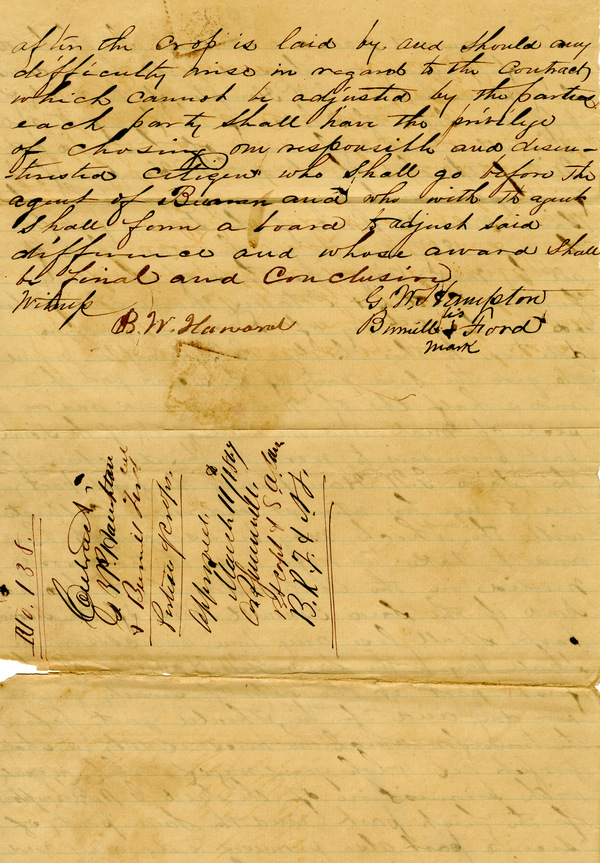 after the crop is laid by and should any
difficulty arise in regard to the Contract
which cannot be adjusted by the parties
each party shall have the privilege
of chosing one responsible and disin-
terested citizen who shall go before the
agent of Bureau and who with th agent
shall form a board to adjust said
difference and whose award shall
be final and Conclusive
Witness
G. W. Hampton
B. W. Howard
his
Burrill X Ford
mark
No. 138.
Contract
G. W. Hampton
& Burrill Ford
Portion of Crops.
Approved
March 11/1867
B. R. F. & A. L.